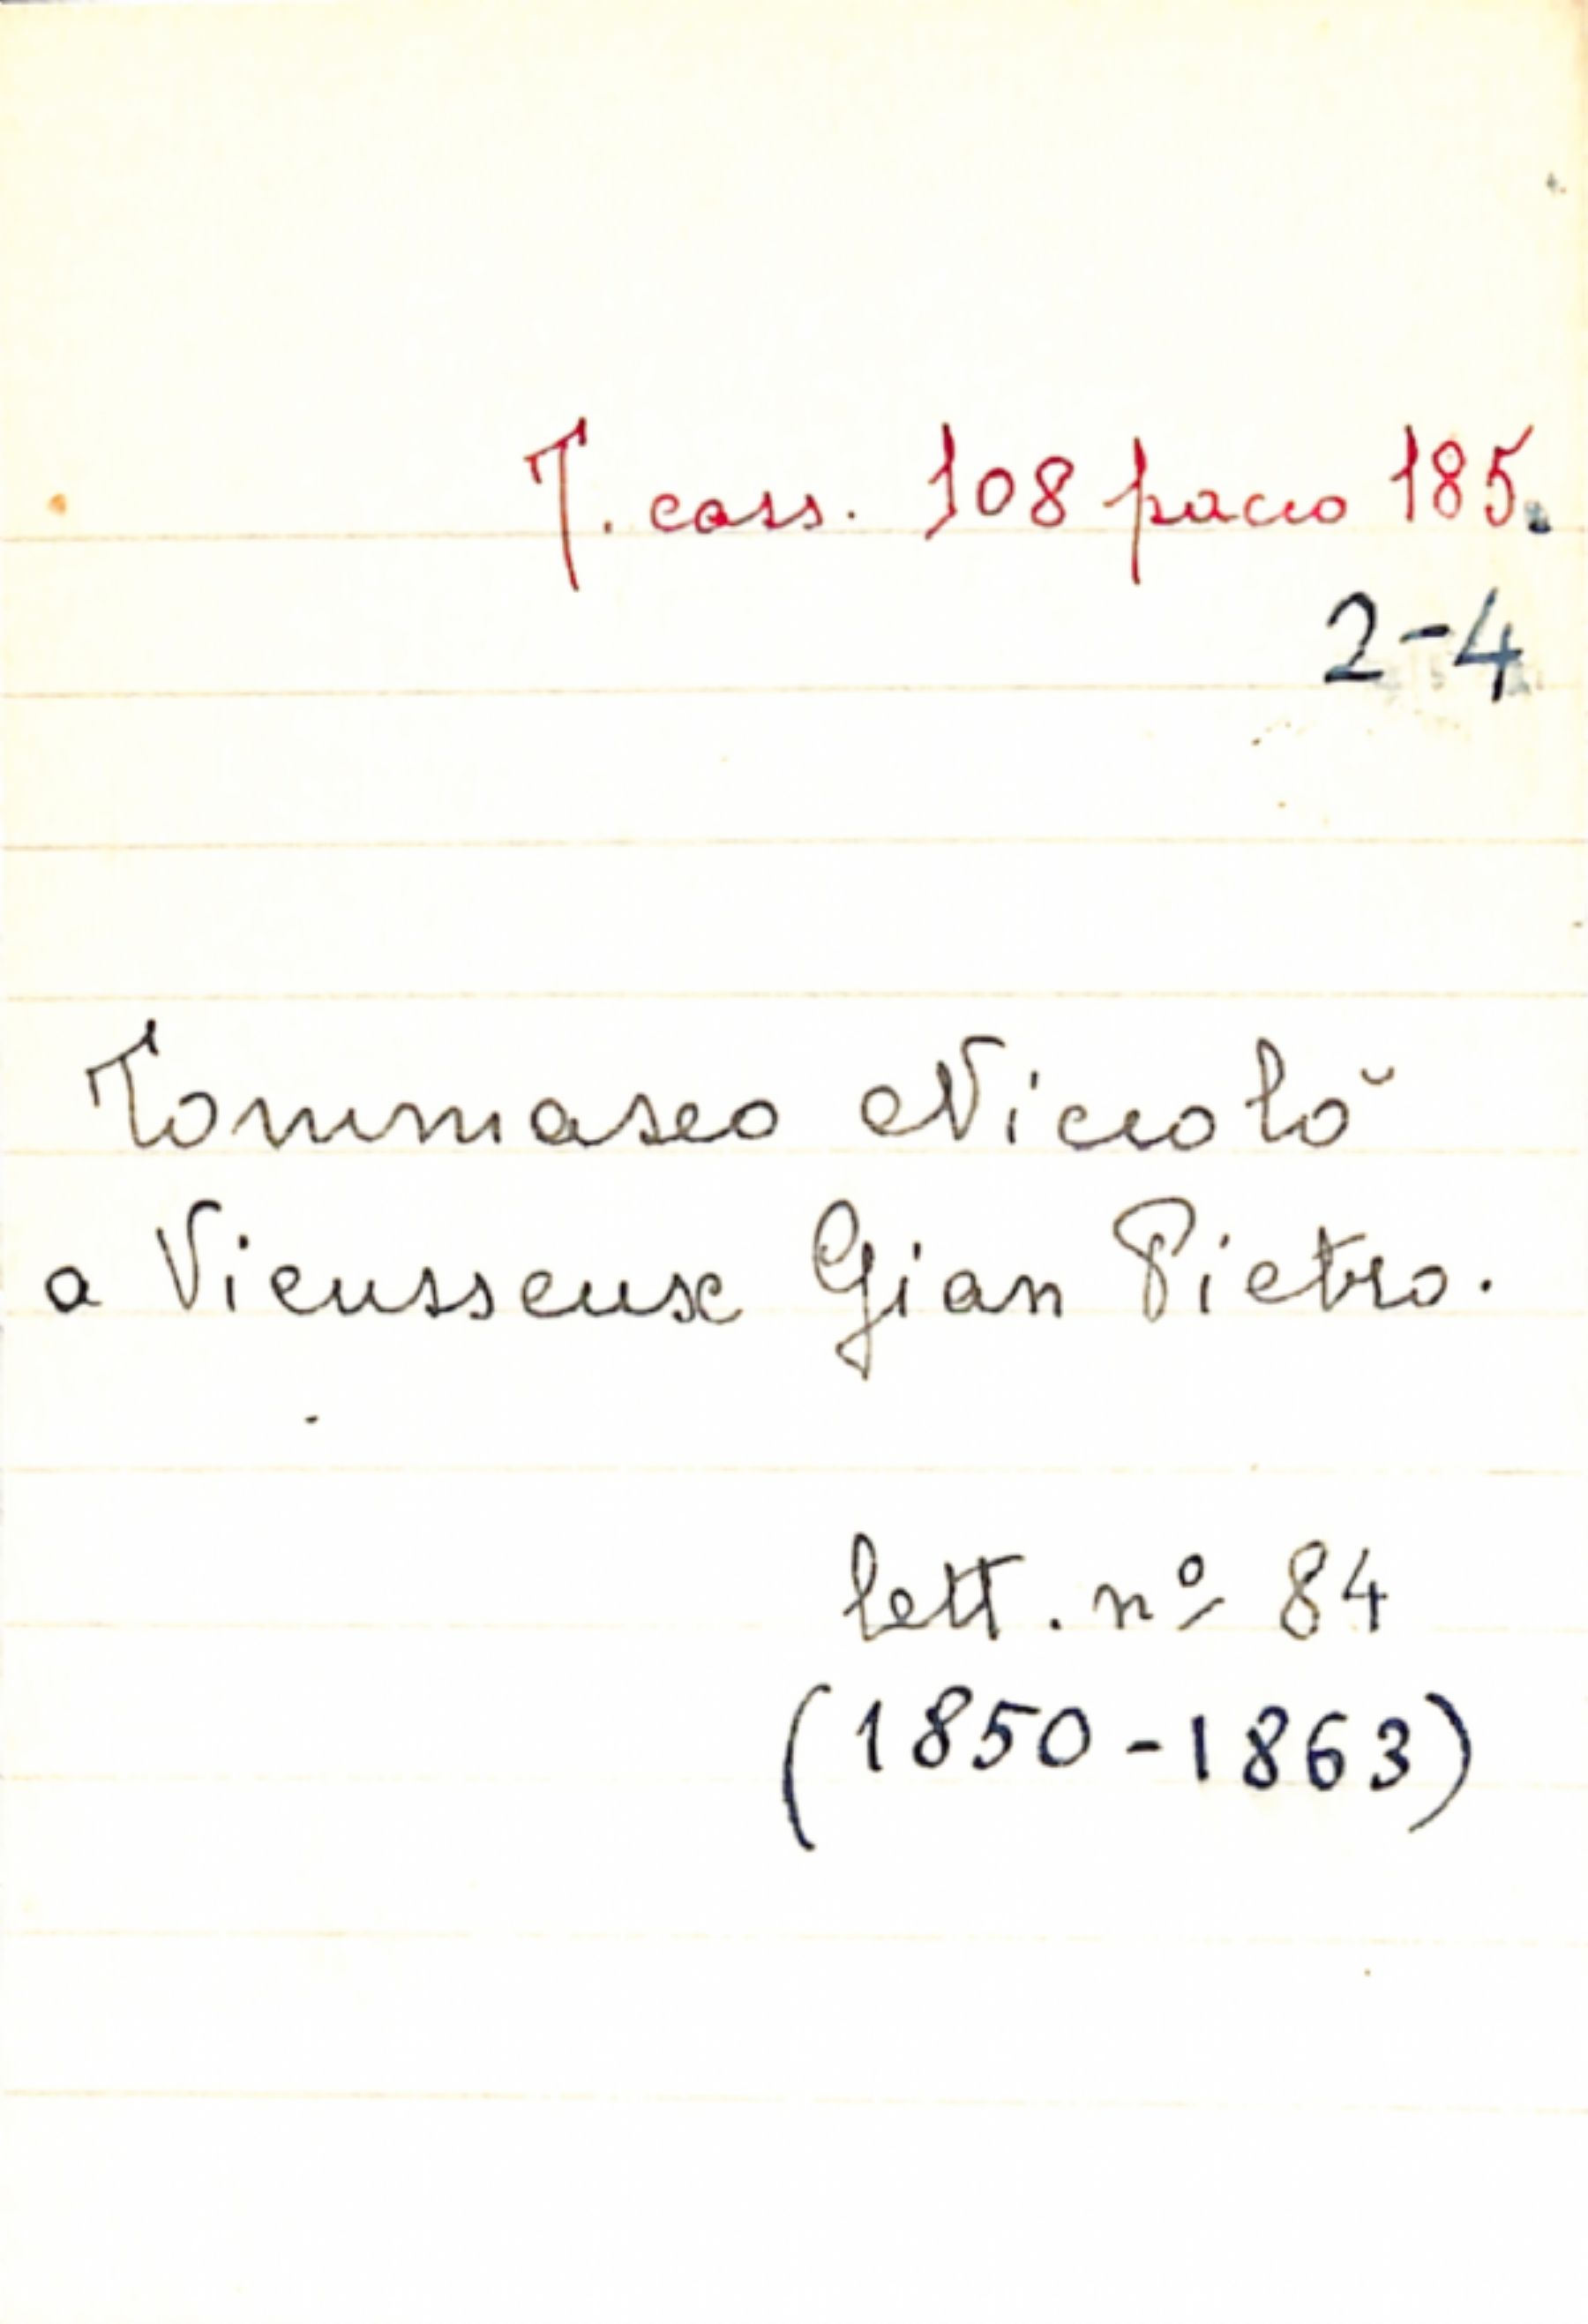 T. cass. 108 pacco 185.
2-4
Tommaseo Niccolò
a Vieusseux Gian Pietro.
lett. nº 84
(1850-1863)